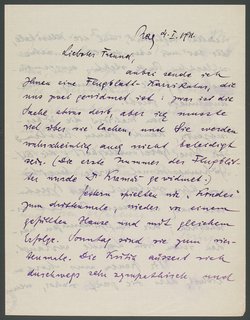 Prag 4. I. 921.
Liebster Freund,
anbei sende ich
Ihnen eine Flugblatt-Karrikatur, die
uns zwei gewidmet ist; zwar ist die
Sache etwas derb, aber ich musste
viel über sie lachen, und Sie werden
wahrscheinlich auch nicht beleidigt
sein. (Die erste Nummer des Flugblät-
ter wurde Kramář gewidmet.)
Gestern spielten wir "Kinder"
zum drittenmale, wieder vor einem
gefüllten Hause und mit gleichem
Erfolge. Sonntag sind wir zum vier-
tenmale. Die Kritik äussert sich
durchwegs sehr sympathisch und